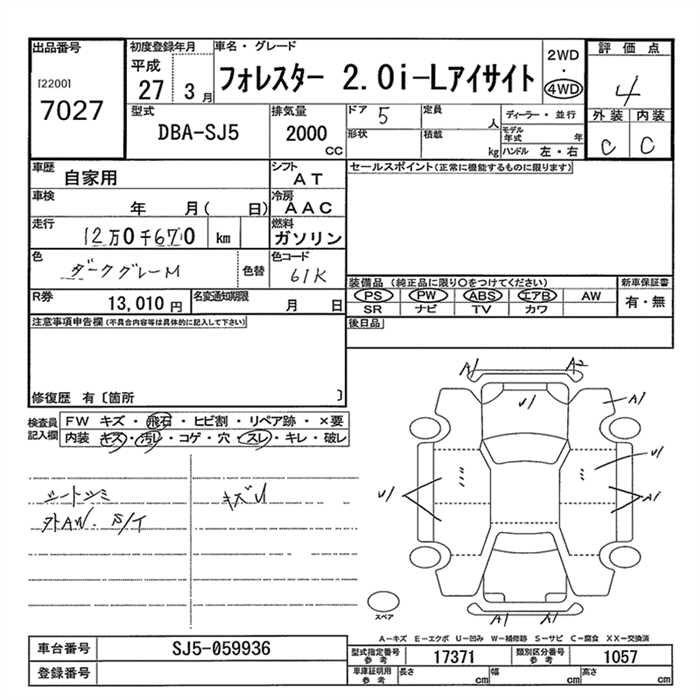 出品番号
[2200]
7027
初度登録年月
平成
27 3月
車名・グレード
フォレスター 2.0i-Lアイサイト
2WD
・
4WD
評価点
4
外装 内装
C C
型式
DBA-SJ5
排気量
2000
CC
ドア 5
定員 人
形状
積載 kg
ディーラー・並行
モデル年式 年
ハンドル 左・右
車歴
自家用
シフト
AT
セールスポイント(正常に機能するものに限ります)
車検
年 月( 日)
冷房
AAC
走行
12万0千670 km
燃料
ガソリン
色
ダークグレーM
色替
色コード
61K
R券
13,010円
名変通知期限
月 日
装備品(純正品に限り○をつけてください)
PS PW ABS エアB AW
SR ナビ TV カワ
新車保証書
有・無
注意事項申告欄(不具合内容等は具体的に記入して下さい)
後日品
修復歴 有〔箇所 〕
検査員
記入欄
FW キズ・飛石・ヒビ割・リペア跡・×要
内装 キズ・汚レ・コゲ・穴・スレ・キレ・破レ
シートシミ
外AW. S/T
キズU
A1 A2
U1
A1
U1
U1
A1
A1 A1
スペア
A-キズ E-エクボ U-凹み W-補修跡 S-サビ C-腐食 XX-交換済
車台番号
SJ5-059936
登録番号
型式指定番号
参考
17371
類別区分番号
参考
1057
車庫証明用
参考
長さ cm
幅 cm
高さ cm